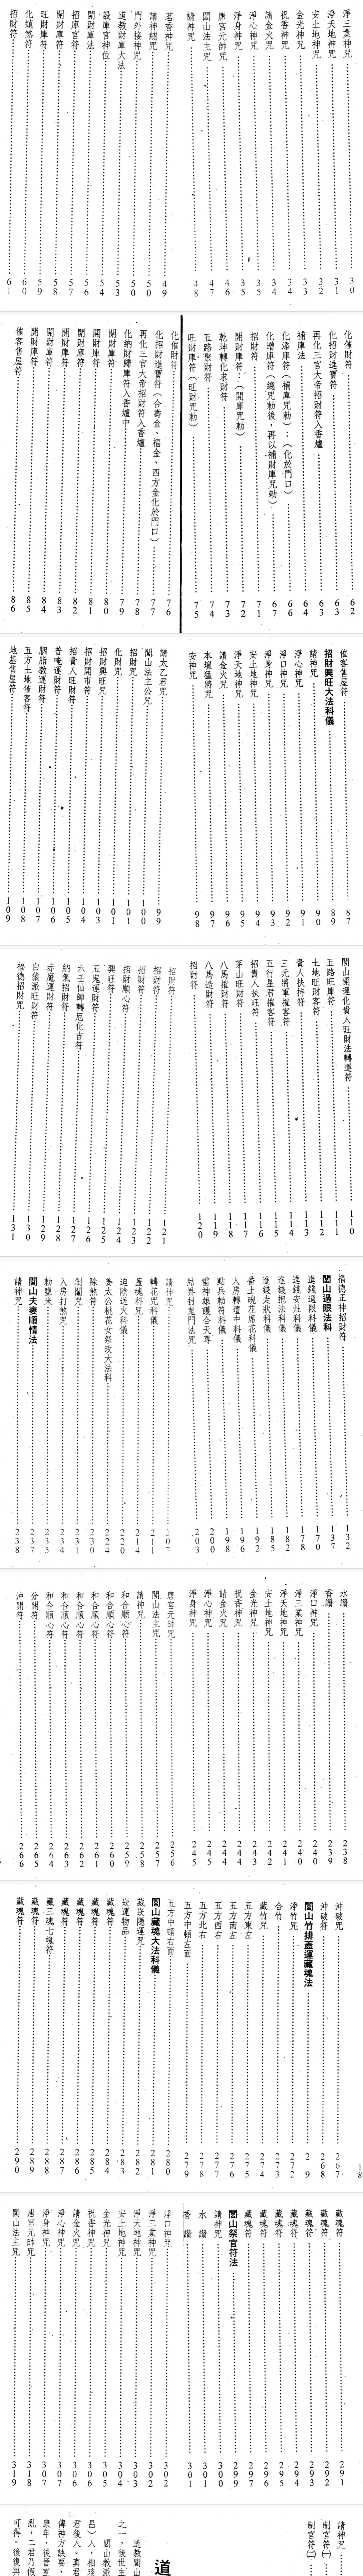 淨三業神咒 30
淨天地神咒 31
安土地神咒 32
金光神咒 33
祝香神咒 34
請金火咒 34
淨心神咒 35
淨身神咒 35
唐宮元帥咒 46
閭山法主咒 47
請神咒 48
茗香神咒 49
請神總咒 50
門外接神咒 50
道教財庫大法 53
設庫官神位 54
開財庫法 56
招庫官符 57
開財庫符 58
旺財庫符 59
化鎮煞符 60
招財符 61
化催財符 62
化招財進寶符 63
再化三官大帝招財符入香爐 63
補庫法 64
化添庫符(補庫咒勅):(化於門口) 66
化增庫符(總咒勅後,再以補財庫咒勅) 67
招財符 71
開財庫符:(開庫咒勅) 72
乾坤轉化求財符 73
五路聚財符 74
旺財庫符(旺財咒勅) 75
化催財符 76
化招財進寶符(合壽金、福金、四方金化於門口) 77
再化三官大帝招財符入香爐 78
化納財歸庫符入香爐中 79
開財庫符 80
開財庫符 81
開財庫符 82
開財庫符 83
開財庫符 84
開財庫符 85
催客售屋符 86
催客售屋符 87
招財興旺大法科儀 89
請神咒 90
淨心神咒 91
淨口神咒 92
淨身神咒 93
安土地神咒 94
淨天地神咒 95
請金火咒 96
本壇猛將咒 97
安神咒 98
請太乙君咒 99
閭山法主公咒 100
招財咒 101
化財咒 101
招財興旺咒 103
招財開市符 104
招貴人旺財符 105
普唵運財符 106
胭脂教運財符 107
五方土地催客符 108
地基售屋符 109
閭山開運化貴人旺財法轉運符 110
五路旺庫符 111
土地旺財客符 112
貴人扶持符 113
三元將軍摧客符 114
五行星君摧客符 115
招貴人扶旺符 116
茅山旺財符 117
八馬摧財符 118
八馬造財符 119
招財符 120
招財符 121
招財符 122
招財符 123
招財順心符 124
興旺符 125
五鬼運財符 126
六壬仙師轉厄化吉符 127
納氣招財符 128
赤魔運財符 129
白猿派旺財符 130
福德招財咒 131
福德正神招財符 132
閭山過限法科 137
進錢過限科儀 170
進錢安灶科儀 178
進錢抱法科儀 182
進錢走狀科儀 185
番土碗花席花科儀 192
入房轉壇中科儀 196
點兵勅符科儀 198
雷神雄護合天尊 200
結界封鬼門法咒 203
請神咒 207
轉花咒科儀 211
蓋魂科咒 214
迫陰送火科儀 220
姜太公桃花女祭改大法科 224
除煞符 230
剋闔咒 231
入房打煞咒 234
勅鹽米 235
閭山夫妻順情法 237
請神咒 238
水讚 238
香讚 239
淨口神咒 240
淨三業神咒 240
淨天地神咒 241
安土地神咒 242
金光神咒 243
祝香神咒 244
請金火咒 244
淨心神咒 245
淨身神咒 245
唐宮元帥咒 256
閭山法主咒 257
請神咒 258
和合順心符 259
和合順心符 260
和合順心符 261
和合順心符 262
和合順心符 263
和合順心符 264
分開符 265
沖開符 266
沖破咒 267
沖破符 268
閭山竹排蓋運藏魂法
淨竹咒 272
合竹 273
藏竹咒 274
五方東左 275
五方南左 276
五方西右 277
五方北右 278
五方中頓左面 279
五方中頓右面 280
閭山藏魂大法科儀 281
藏炭隱運咒 282
炭運物品 283
藏魂符 284
藏魂符 285
藏魂符 286
藏魂符 287
藏三魂七魄符 288
藏魂符 289
藏魂符 290
藏魂符 291
藏魂符 292
藏魂符 293
藏魂符 294
藏魂符 295
藏魂符 296
藏魂符 297
閭山祭官符法 299
請神咒 300
水讚 301
香讚 301
淨口神咒 302
淨三業神咒 302
淨天地神咒 303
安土地神咒 304
金光神咒 305
祝香神咒 306
請金火咒 306
淨心神咒 307
淨身神咒 307
唐宮元帥咒 318
閭山法主咒 319
請神咒
制官符(一)
制官符(二)
道
道教閭山
之一,後世主
閭山教派